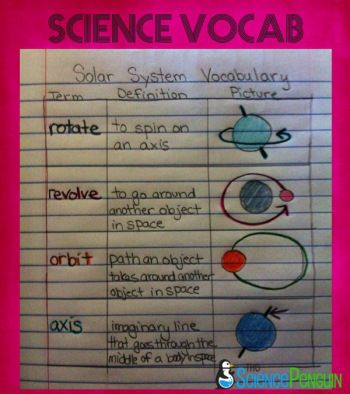 SCIENCE VOCAB
Solar System Vocabulary
Term Definition Picture
rotate to spin on
an axis
revolve to go around
another object
in space
orbit path an object
takes around another
object in space
axis imaginary line
that goes through the
middle of a body in space
The
SciencePenguin